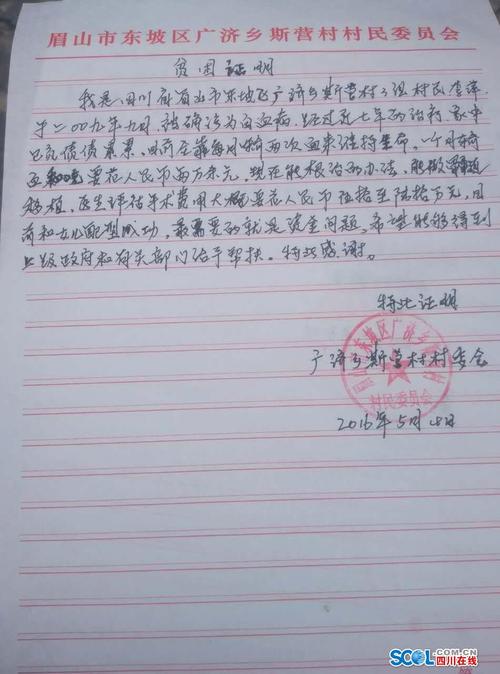 眉山市东坡区广济乡斯营村村民委员会
贫困证明
我是四川省眉山市东坡区广济乡斯营村3组村民
于二00九年九月,被确诊为白血病,经过死七年的治疗,家中
已负债累累,目前在靠每月输两次血来维持生命,一个月输
血和吃要花人民币两万余元,想在能根治的办法,能做骨髓
移植,医生评估手术费用大概要花人民币伍拾至陆拾万元,目
前和女儿配型成功,最需要的就是资金问题。希望能够得到
上级政府和有关部门给予帮扶。特此感谢。
特此证明
广济乡斯营村村委会
东坡区广济乡
村民委员会
2016年5月 日
SCOL.COM.CN
四川在线